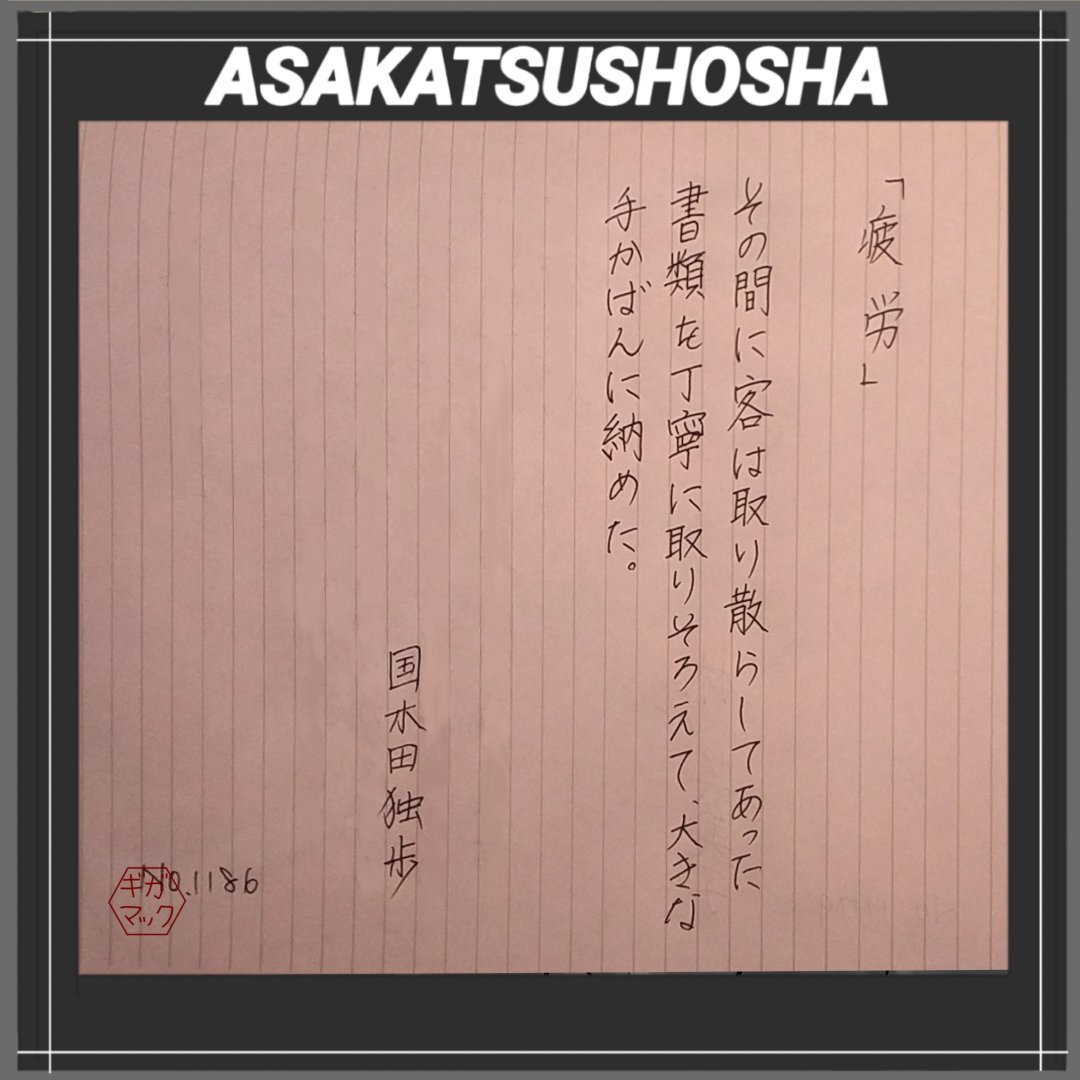 ASAKATSUSHOSHA
「疲労」
その間に客は取り散らしてあった
書類を丁寧に取りそろえて、大きな
手かばんに納めた。
国木田独歩
No.1186
ギガ
マック